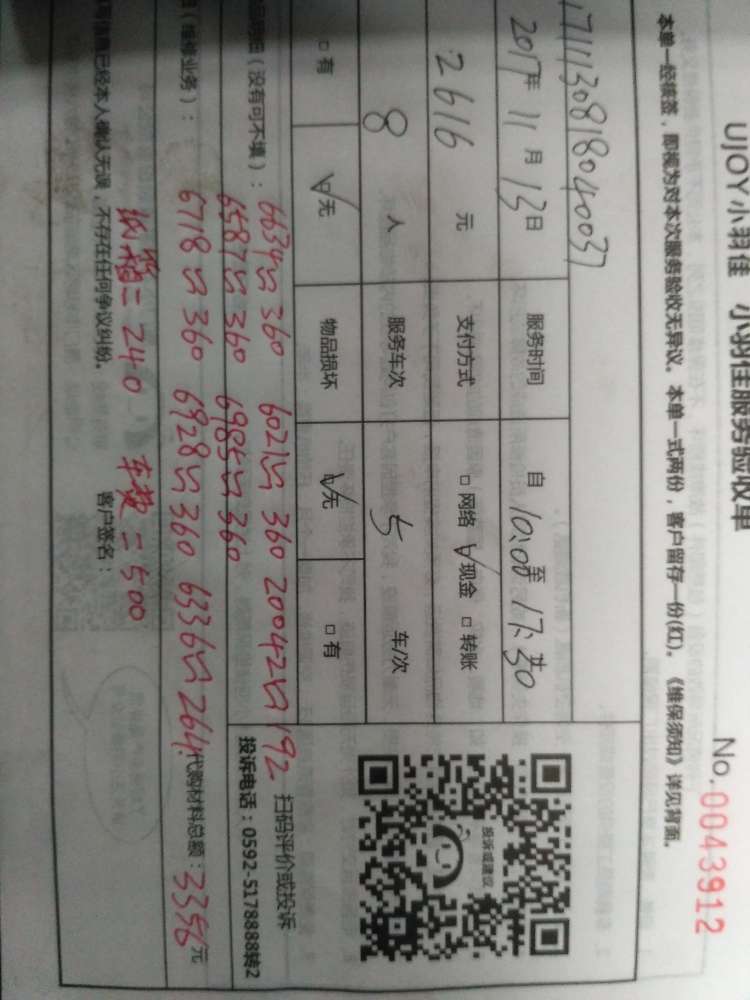 UJOY小羽佳 小羽佳服务验收单
No.0043912
本单一经签签，即视为对本次服务验收无异议。本单一式两份，客户留存一份(红)。《维保须知》详见背面。
1711130818040037
2017年11月13日 服务时间 自10:00至17:30
2616元 支付方式 □网络 ☑现金 □转账
8人 服务车次 5 车/次
□有 ☑无 物品损坏 ☑无 □有
投诉或建议
扫码评价或投诉
投诉电话：0592-5178888转2
(没有可不填)：6634 360 6021 360 20042 192
6587 360 6985 360
(维修业务)：6718 360 6928 360 6336 264 代购材料总额：3356元
已经本人确认无误，不存在任何争议纠纷。
客户签名：
纸箱=240 车费=500